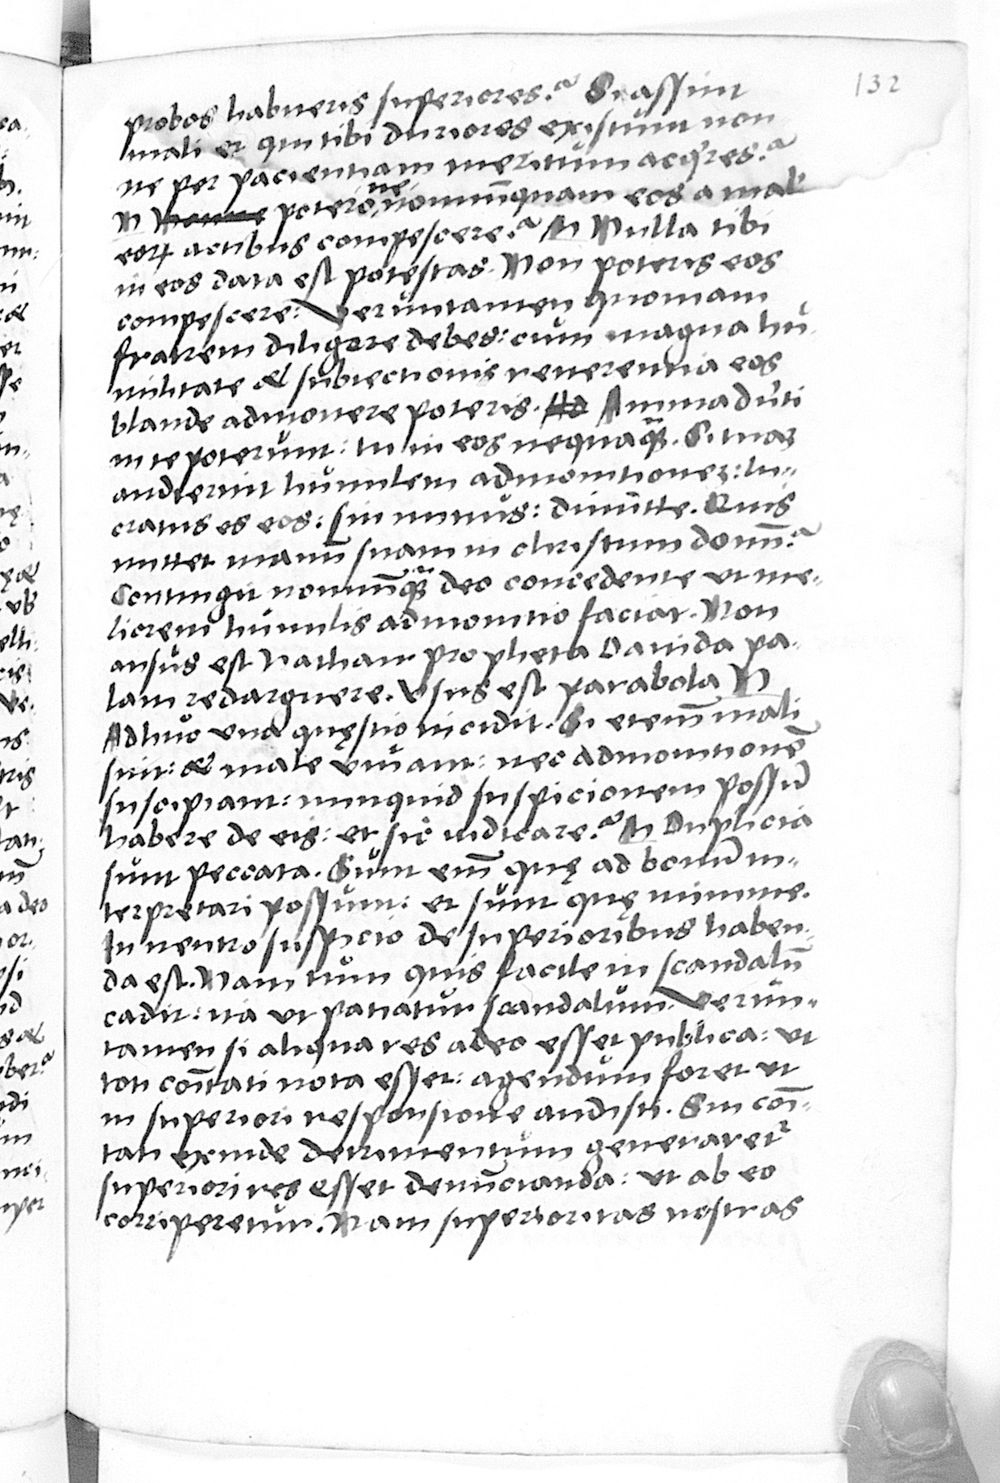 132
probos habueris superiores? Si assint
mali et qui tibi duriores existunt non
ne per pacientiam meritum acq̃res?
N Nonne poterone nonnũquam eos a mal'
eorꝝ actibus compescere? N Nulla tibi
in eos data est potestas. Non poteris eos
compescere: Veruntamen quoniam
fratrem diligere debes: cum magna hu
militate & subiectionis reuerentia eos
blande admonere poteris. Animaduˀti
in te poterunt: tu in eos nequaq̃. Si tuas
audierint humilem admonitiones: lu-
cratus es eos: sin minus: dimitte. Quis
mittet manũ suam in christum domĩ?
Contingit nonnũq̃ deo concedente ut me-
liorem humilis admonitio faciat. Non
ausus est Nathan propheta Dauida pa-
lam redarguere. Vsus est parabola N
Adhuc una quęstio incidit. Si etenĩ mali
sint: & male viuant: nec admonitionẽ
suscipiant: nunquid suspicionem possũ
habere de eis: et sic iudicare? N Duplicia
sunt peccata. Sunt enĩ quę ad bonũ in-
terpretari possunt: et sunt quę minime.
In neutro suspicio de superioribus haben-
da est. Nam tum quis facile in scandalũ
cadit: ita ut patiatur scandalum. Verun-
tamen si aliqua res adeo esset publica: ut
toti cõũtati nota esset: agendum foret ut
in superiori responsione audisti. Sin cõi-
tati exinde detrimentum generaret²
superiori res esset denũcianda: ut ab eo
corriperetur. Nam superioritas nostras